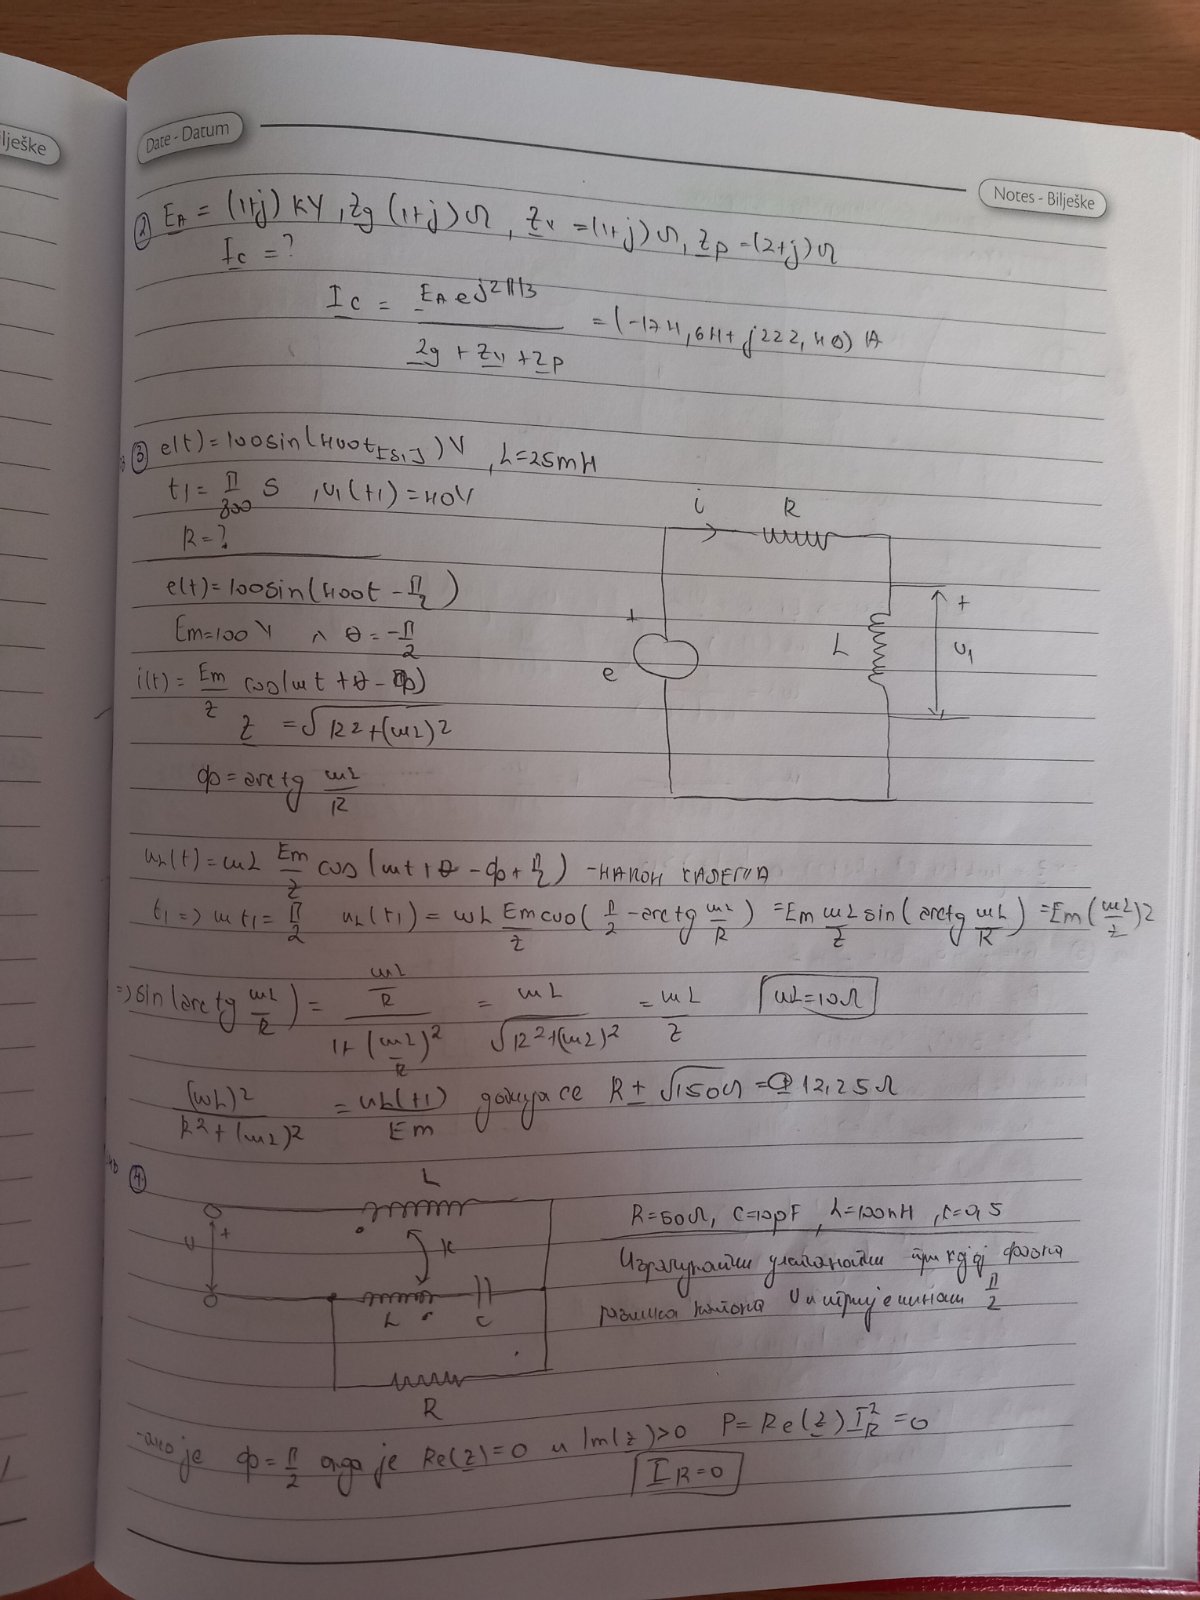 ilješke
Date - Datum
Notes - Bilješke
② E_A = (1+j) kV, Zg (1+j) Ω, Zv = (1+j) Ω, Zp = (2+j) Ω
I_C = ?
I_C = E_A e^j2π/3 / Zg + Zv + Zp = (-174,64 + j222,40) A
③ e(t) = 100sin(400t[s]) V, L = 25mH
t1 = π/800 s, u1(t1) = 40V
R = ?
i R
e(t) = 100sin(400t - π/2)
+ +
Em = 100V ∧ θ = -π/2
e L u1
i(t) = Em/Z cos(ωt + θ - ф)
Z = √R² + (ωL)²
ф = arctg ωL/R
uL(t) = ωL Em/Z cos(ωt + θ - ф + π/2) - НАКОН КАЛЕМА
t1 => ωt1 = π/2 uL(t1) = ωL Em/Z cos(π/2 - arctg ωL/R) = Em ωL/Z sin(arctg ωL/R) = Em (ωL/Z)²
=> sin(arctg ωL/R) = ωL/R / 1+(ωL/R)² = ωL / √R²+(ωL)² = ωL/Z ωL = 10Ω
(ωL)² / R²+(ωL)² = uL(t1) / Em добија се R = √150 Ω = 12,25Ω
④
L
R = 50Ω, C = 10pF, L = 100nH, k = 0,5
U + k
Израчунати учестаност при којој фазна
разлика напона U и струје износи π/2
L C
R
- ако је ф = π/2 онда је Re(Z) = 0 и Im(Z) > 0 P = Re(Z) I_R² = 0
I_R = 0